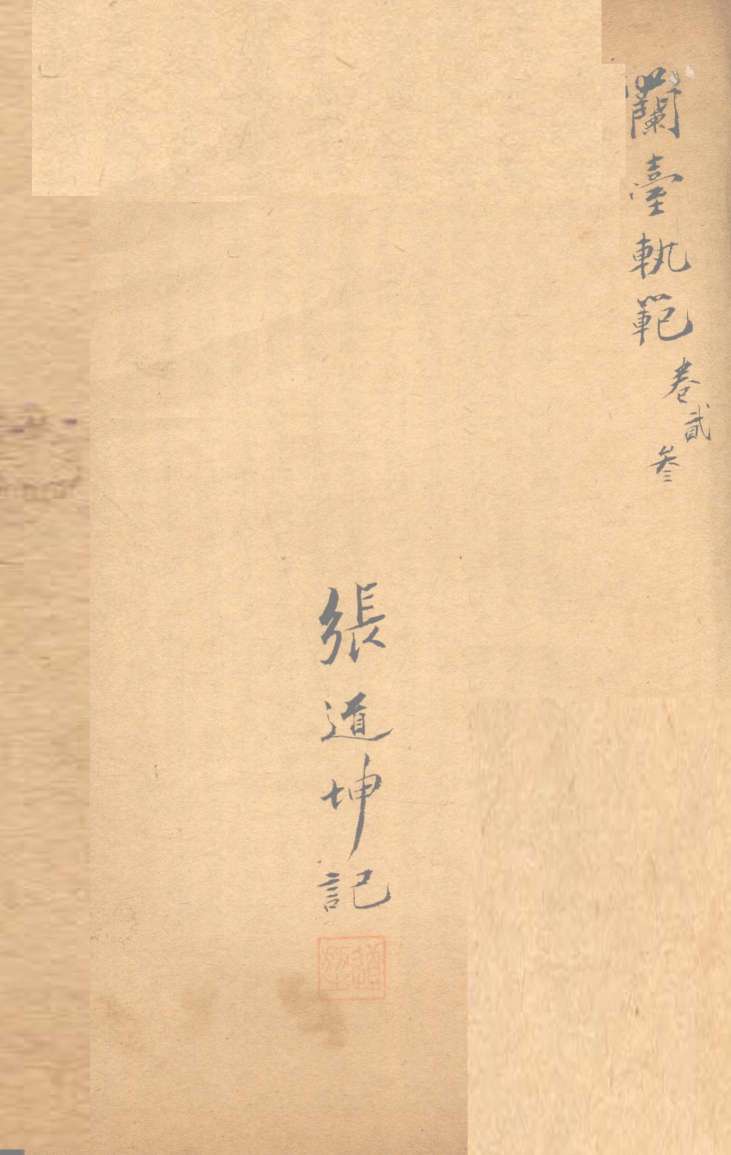 蘭臺執範
卷貳
叁
張道坤記